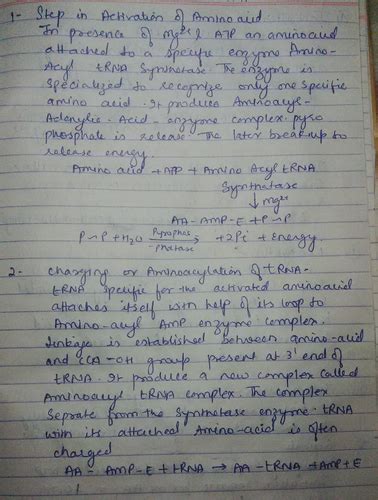 1- Step in Activation of Amino acid
In presence of Mg2+ & ATP an aminoacid
attached to a specific enzyme Amino-
Acyl tRNA Synthetase. The enzyme is
specialized to recognize only one specific
amino acid. It produce Aminoacyl-
Adenylic-Acid-enzyme complex. pyro
phosphate is release. The later breakup to
release energy.
Amino acid + ATP + Amino Acyl tRNA
Synthetase
↓ Mg2+
AA-AMP-E + P~P
P~P + H2O Pyrophos-phatase → +2Pi + Energy
2- Charging or Aminoacylation of tRNA-
tRNA specific for the activated aminoacid
attaches itself with help of its loop to
Amino-acyl AMP enzyme complex.
linkage is established between amino-acid
and CCA-OH group present at 3' end of
tRNA. It produce a new complex called
Aminoacyl tRNA complex. The complex
Seprate from the Synthetase enzyme. tRNA
with its attached Amino-acid is often
charged
AA- AMP-E + tRNA → AA-tRNA + AMP + E